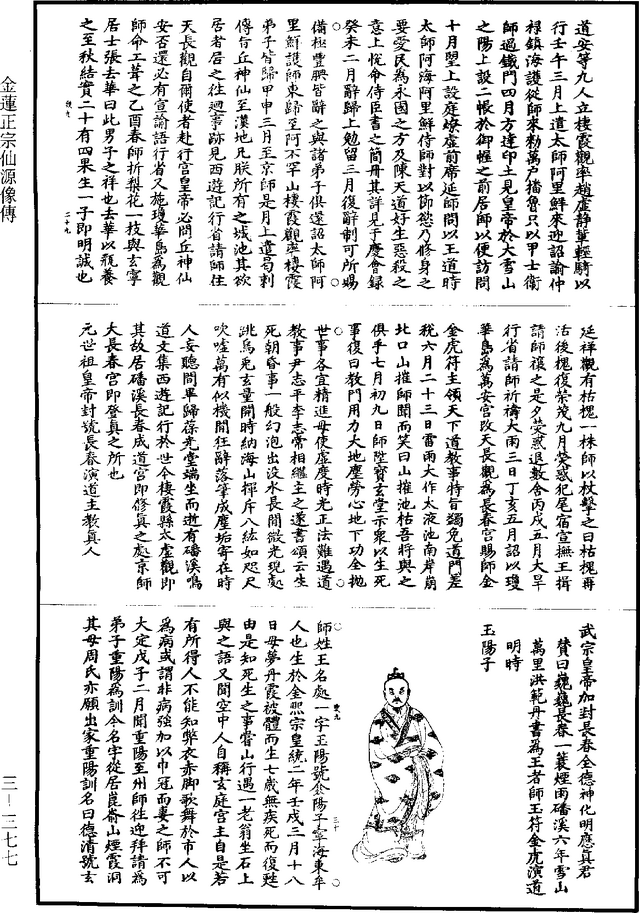 道安等九人立棲霞觀率趙虛靜輩輕騎以
行壬午三月上遣太師阿里鮮來迎詔諭仲
祿鎮海護從師來勑萬戶播魯只以甲士衛
師過鐵門四月方達印土見皇帝於大雪山
之陽上設二帳於御幄之前居師以便訪問
十月望上設庭燎虛前席延師問以王道時
太師阿海阿里鮮侍師對以節慾乃修身之
要愛民為永國之方及陳天道好生惡殺之
意上悅命侍臣書之簡冊其詳見于慶會錄
癸未二月辭歸上勉留三月復辭制可所賜
備極豐腆皆辭之與諸弟子俱還詔太師阿
里鮮護師東歸至阿不罕山棲霞觀率棲霞
弟子皆歸甲申三月至京師是月上遣曷剌
傳旨丘神仙至漢地凡朕所有之城池其欲
居者居之往迴事跡見西遊記行省請師住
天長觀自爾使者赴行宮皇帝必問丘神仙
安否還必有宣諭語行省又施瓊華島為觀
師命工葺之乙酉春師折梨花一枝與玄寧
居士張去華曰此男子之祥也去華以瓶養
之至秋結實二十有四果生一子即明誠也
延祥觀有枯槐一株師以杖擊之曰枯槐再
活後槐復榮茂九月熒惑犯尾宿宣撫王揖
請師禳之是夕熒惑退數舍丙戌五月大旱
行省請師祈禱大雨三日丁亥五月詔以瓊
華島為萬安宮改天長觀為長春宮賜師金
金虎符主領天下道教事特旨蠲免道門差
稅六月二十三日雷雨大作太液池南岸崩
北口山摧師聞而笑曰山摧池枯吾將與之
俱乎七月初九日師陞寶玄堂示眾以生死
事復曰教門用力大地塵勞心地下功全拋
世事各宜精進毋使虛度時光正法難遇道
教事尹志平李志常相繼主之遂書頌云生
死朝昏事一般幻泡出沒水長閑微光現處
跳烏兔玄量開時納海山揮斥八紘如咫尺
吹噓萬有似機關狂辭落筆成塵垢寄在時
人妄聽間畢歸葆光堂端坐而逝有磻溪鳴
道文集西遊記行於世今棲霞縣太虛觀即
其故居磻溪長春成道宮即修真之處京師
大長春宮即登真之所也
元世祖皇帝封號長春演道主教真人
武宗皇帝加封長春全德神化明應真君
贊曰巍巍長春一蓑煙雨磻溪六年雪山
萬里洪範丹書為王者師玉符金虎演道
明時
玉陽子
師姓王名處一字玉陽號全陽子寧海東牟
人也生於金熙宗皇統二年壬戌三月十八
日母夢丹霞被體而生七歲無疾死而復甦
由是知死生之事嘗山行遇一老翁坐石上
與之語又聞空中人自稱玄庭宮主自是若
有所得人不能知弊衣赤腳歌舞於市人以
為病或謂非病強加以巾冠而妻之師不可
大定戊子二月聞重陽至州師往迎拜請為
弟子重陽為訓今名字從居崑嵛山煙霞洞
其母周氏亦願出家重陽訓名曰德清號玄
金蓮正宗仙源像傳
三一三七七